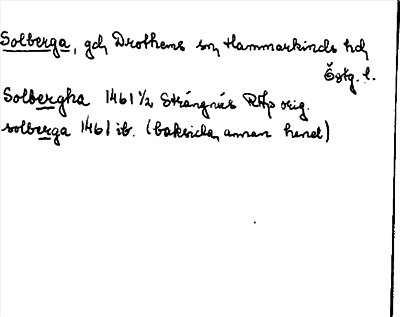 Solberga, gd, Drothems sn, Hammarkinds hd,
Östg. l.
Solbergha 1461 1/2 Strängnäs RAp orig.
solberga 1461 ib. (baksida, annan hand)